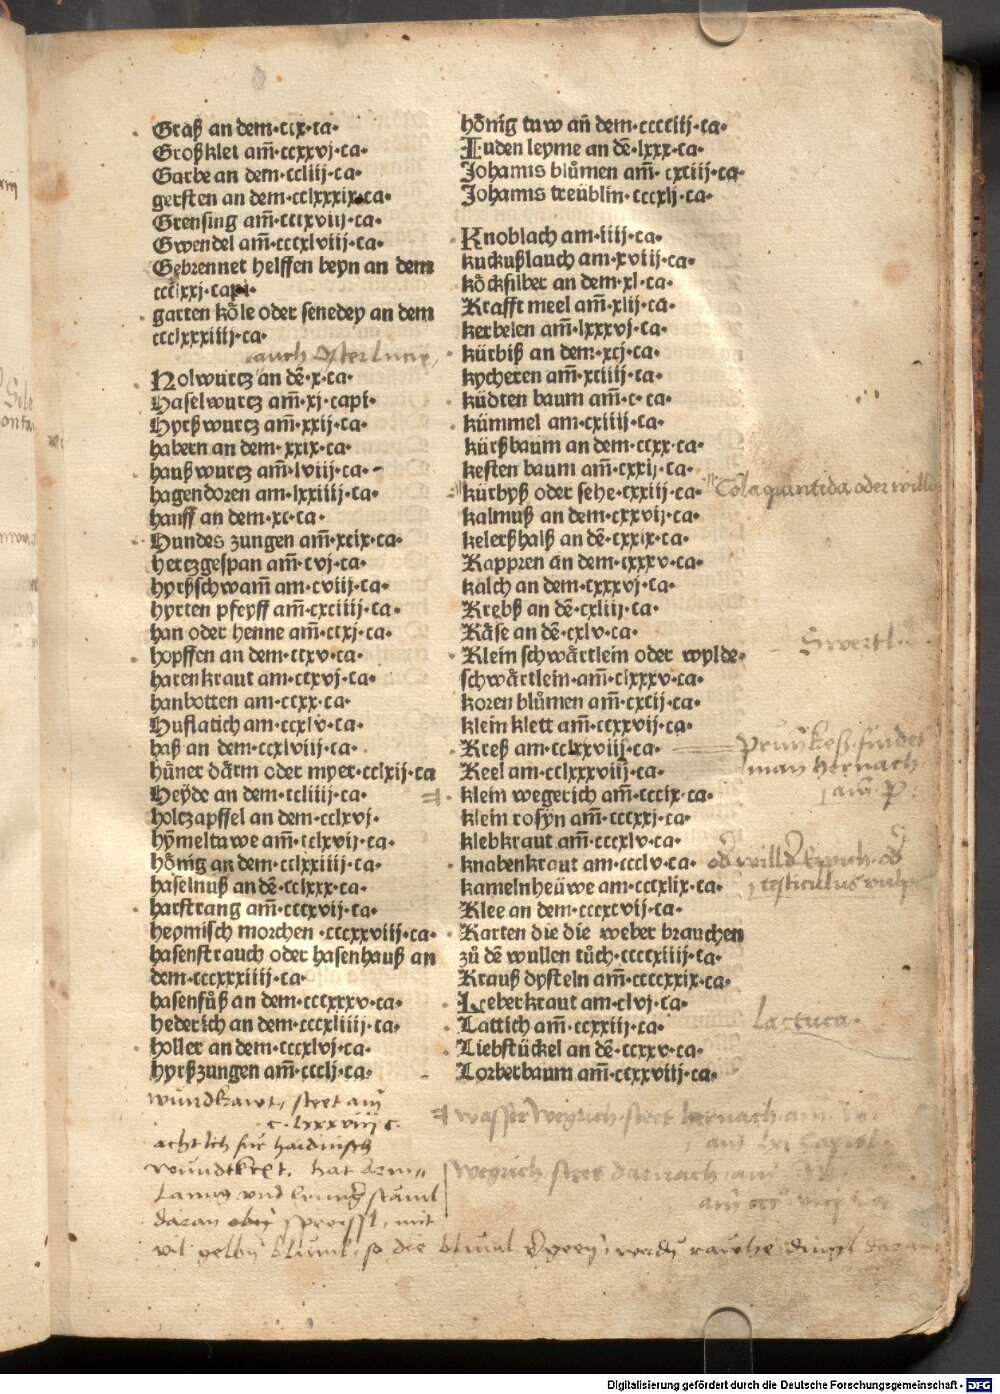 Graß an dem·cix·ca·
Großklet am̄·ccxxvj·ca·
Garbe an dem·ccliij·ca·
gersten an dem·cclxxxix·ca·
Grensing am̄·cccxviij·ca·
Gwendel am̄·cccxlviij·ca·
Gebrennet helffen beyn an dem
ccclxxj·capi·
garten kȯle oder senedey an dem
ccclxxxiiij·ca·
auch Osterlucie
Holwurcz an dē·x·ca·
Haselwurcz am̄·xj·capi·
Hyrßwurcz am̄·xxij·ca·
habern an dem·xxix·ca·
haußwurcz am̄·lviij·ca·
hagendoren am·lxxiiij·ca·
hanff an dem·xc·ca·
Hundes zungen am̄·xcix·ca·
hertzgespan am̄·cvj·ca·
hyrßschwam̄ am·cviij·ca·
hyrten pfeyff am̄·cxciiij·ca·
han oder henne am̄·ccxj·ca·
hopffen an dem·ccxv·ca·
harenkraut am·ccxvj·ca·
hanbotten am·ccxx·ca·
Huflatich am·ccxlv·ca·
haß an dem·ccxlviij·ca·
hüner dȧrm oder myer·cclxij·ca
Heyde an dem·ccliiij·ca·
holczapffel an dem·cclxvj·
hym̄eltawe am̄·cclxvij·ca·
hȯnig an dem·cclxxiiij·ca·
haselnuß an dē·cclxxx·ca·
harstrang am̄·cccxvij·ca·
heymisch morchen·cccxxviij·ca·
hasenstrauch oder hasenhauß an
dem·cccxxxiiij·ca·
hasenfůß an dem·cccxxxv·ca·
hederich an dem·cccxliiij·ca·
holler an dem·cccxlvj·ca·
hyrßzungen am̄·ccclj·ca·
wundkrawt, steet am
c·lxxxviij c·
acht ich für haidnisch
wundtkret. hat
Lanng vnd
daran spreissl, mit
vil gelbn bluml, so die bluml
hȯnig taw an̄ dem·cccciij·ca·
Juden leyme an dē·lxxx·ca·
Johannis blůmen am̄·cxciij·ca·
Johannis treüblin·cccxlj·ca·
Knoblach am·iiij·ca·
kuckußlauch am·xviij·ca·
kȯcksilber an dem·xl·ca·
Krafft meel am̄·xlij·ca·
kerbelen am̄·lxxxvj·ca·
kürbiß an dem·xcj·ca·
kycheren am̄·xciiij·ca·
küdten baum am̄·c·ca·
kümmel am·cxiiij·ca·
kürßbaum an dem·ccxx·ca·
kesten baum am̄·cxxij·ca·
kürbyß oder sehe·cxxiij·ca·
Colaquintida oder wilde
kalmuß an dem·cxxvij·ca·
kelerßhalß an dē·cxxix·ca·
Kappren an dem·cxxxv·ca·
kȧlch an dem·cxxxvj·ca·
Krebß an dē·cxliij·ca·
Kȧse an dē·cxlv·ca·
Klein schwȧrtlein oder wylde·
Swertl
schwȧrtlein·am̄·clxxxv·ca·
koren blůmen am̄·cxcij·ca·
klein klett am̄·ccxxvij·ca·
Kreß am·cclxxviij·ca·
prunkeß findet
man hernach
am p
Keel am·cclxxxviij·ca·
klein wegerich am̄·cccix·ca·
klein rosyn am̄·cccxxj·ca·
klebkraut am̄·cccxlv·ca·
knabenkraut am·ccclv·ca·
testiculus vulp
kamelnheüwe am·cccxlix·ca·
Klee an dem·cccxcvij·ca·
Karten die die weber brauchen
zů dē wullen tůch·ccccxiiij·ca·
Krauß dysteln am̄·ccccxxix·ca·
Leberkraut am·clvj·ca·
Lattich am̄·ccxxiij·ca·
Lactuca·
Liebstückel an dē·ccxxv·ca·
Lorberbaum am̄·ccxxviij·ca·
wasser Wegrich steet hernach am
Wegrich steet darnach am
Digitalisierung gefördert durch die Deutsche Forschungsgemeinschaft - DFG